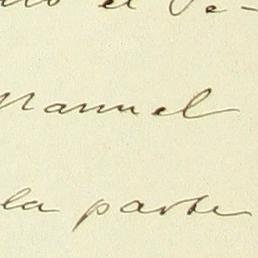 el Se-
Manuel
la parte